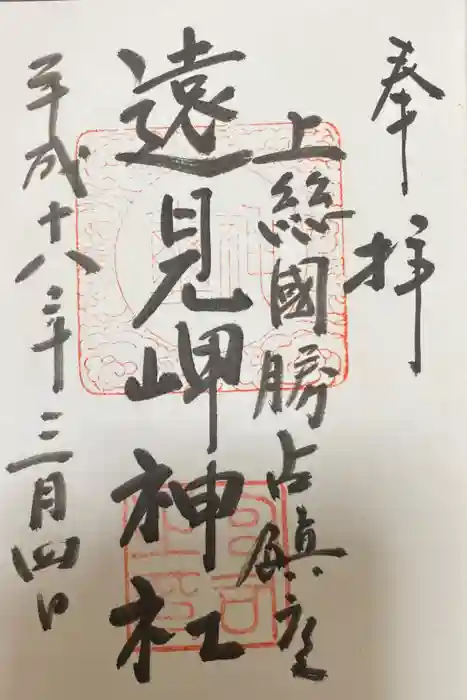 奉拝
上総國勝占鎮座
遠見岬神社
平成十八年三月四日